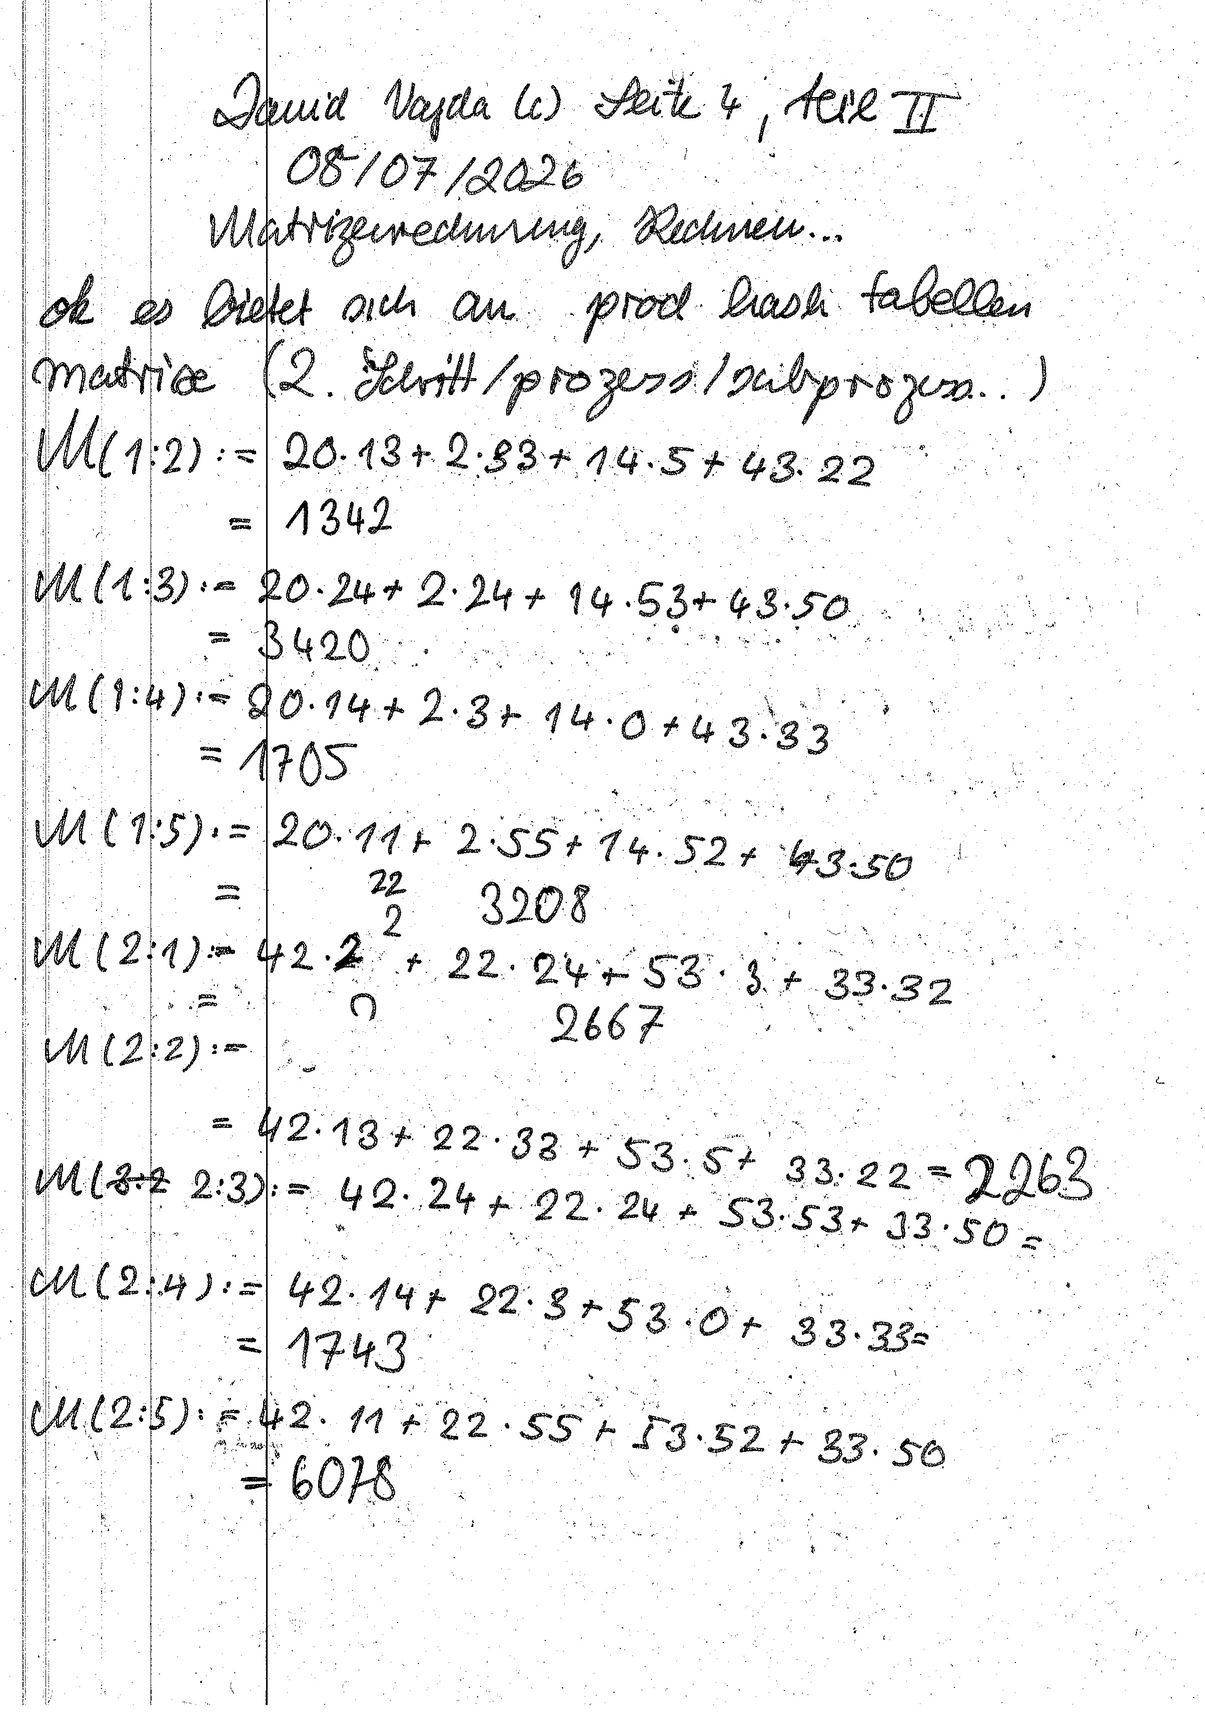 David Vajda (c) Seite 4, teil II
08/07/2026
Matrizenrechnung, Rechnen...
ok es bietet sich an prod hash tabellen
matrixe (2. Schritt/prozess/subprozess..)
M(1:2) := 20·13+ 2·33+ 14·5+ 43·22
= 1342
M(1:3) := 20·24+ 2·24+ 14·53+ 43·50
= 3420
M(1:4) := 20·14+ 2·3+ 14·0+43·33
= 1705
M(1:5) := 20·11+ 2·55+ 14·52+ 43·50
= 22 3208
2
M(2:1) := 42·2 + 22·24+ 53·3+ 33·32
= 2667
M(2:2) :=
= 42·13+ 22·33+ 53·5+ 33·22 = 2263
M(3:2 2:3) := 42·24+ 22·24+ 53·53+ 33·50=
M(2:4) := 42·14+ 22·3+53·0+ 33·33=
= 1743
M(2:5) := 42·11+22·55+ 53·52+ 33·50
= 6078